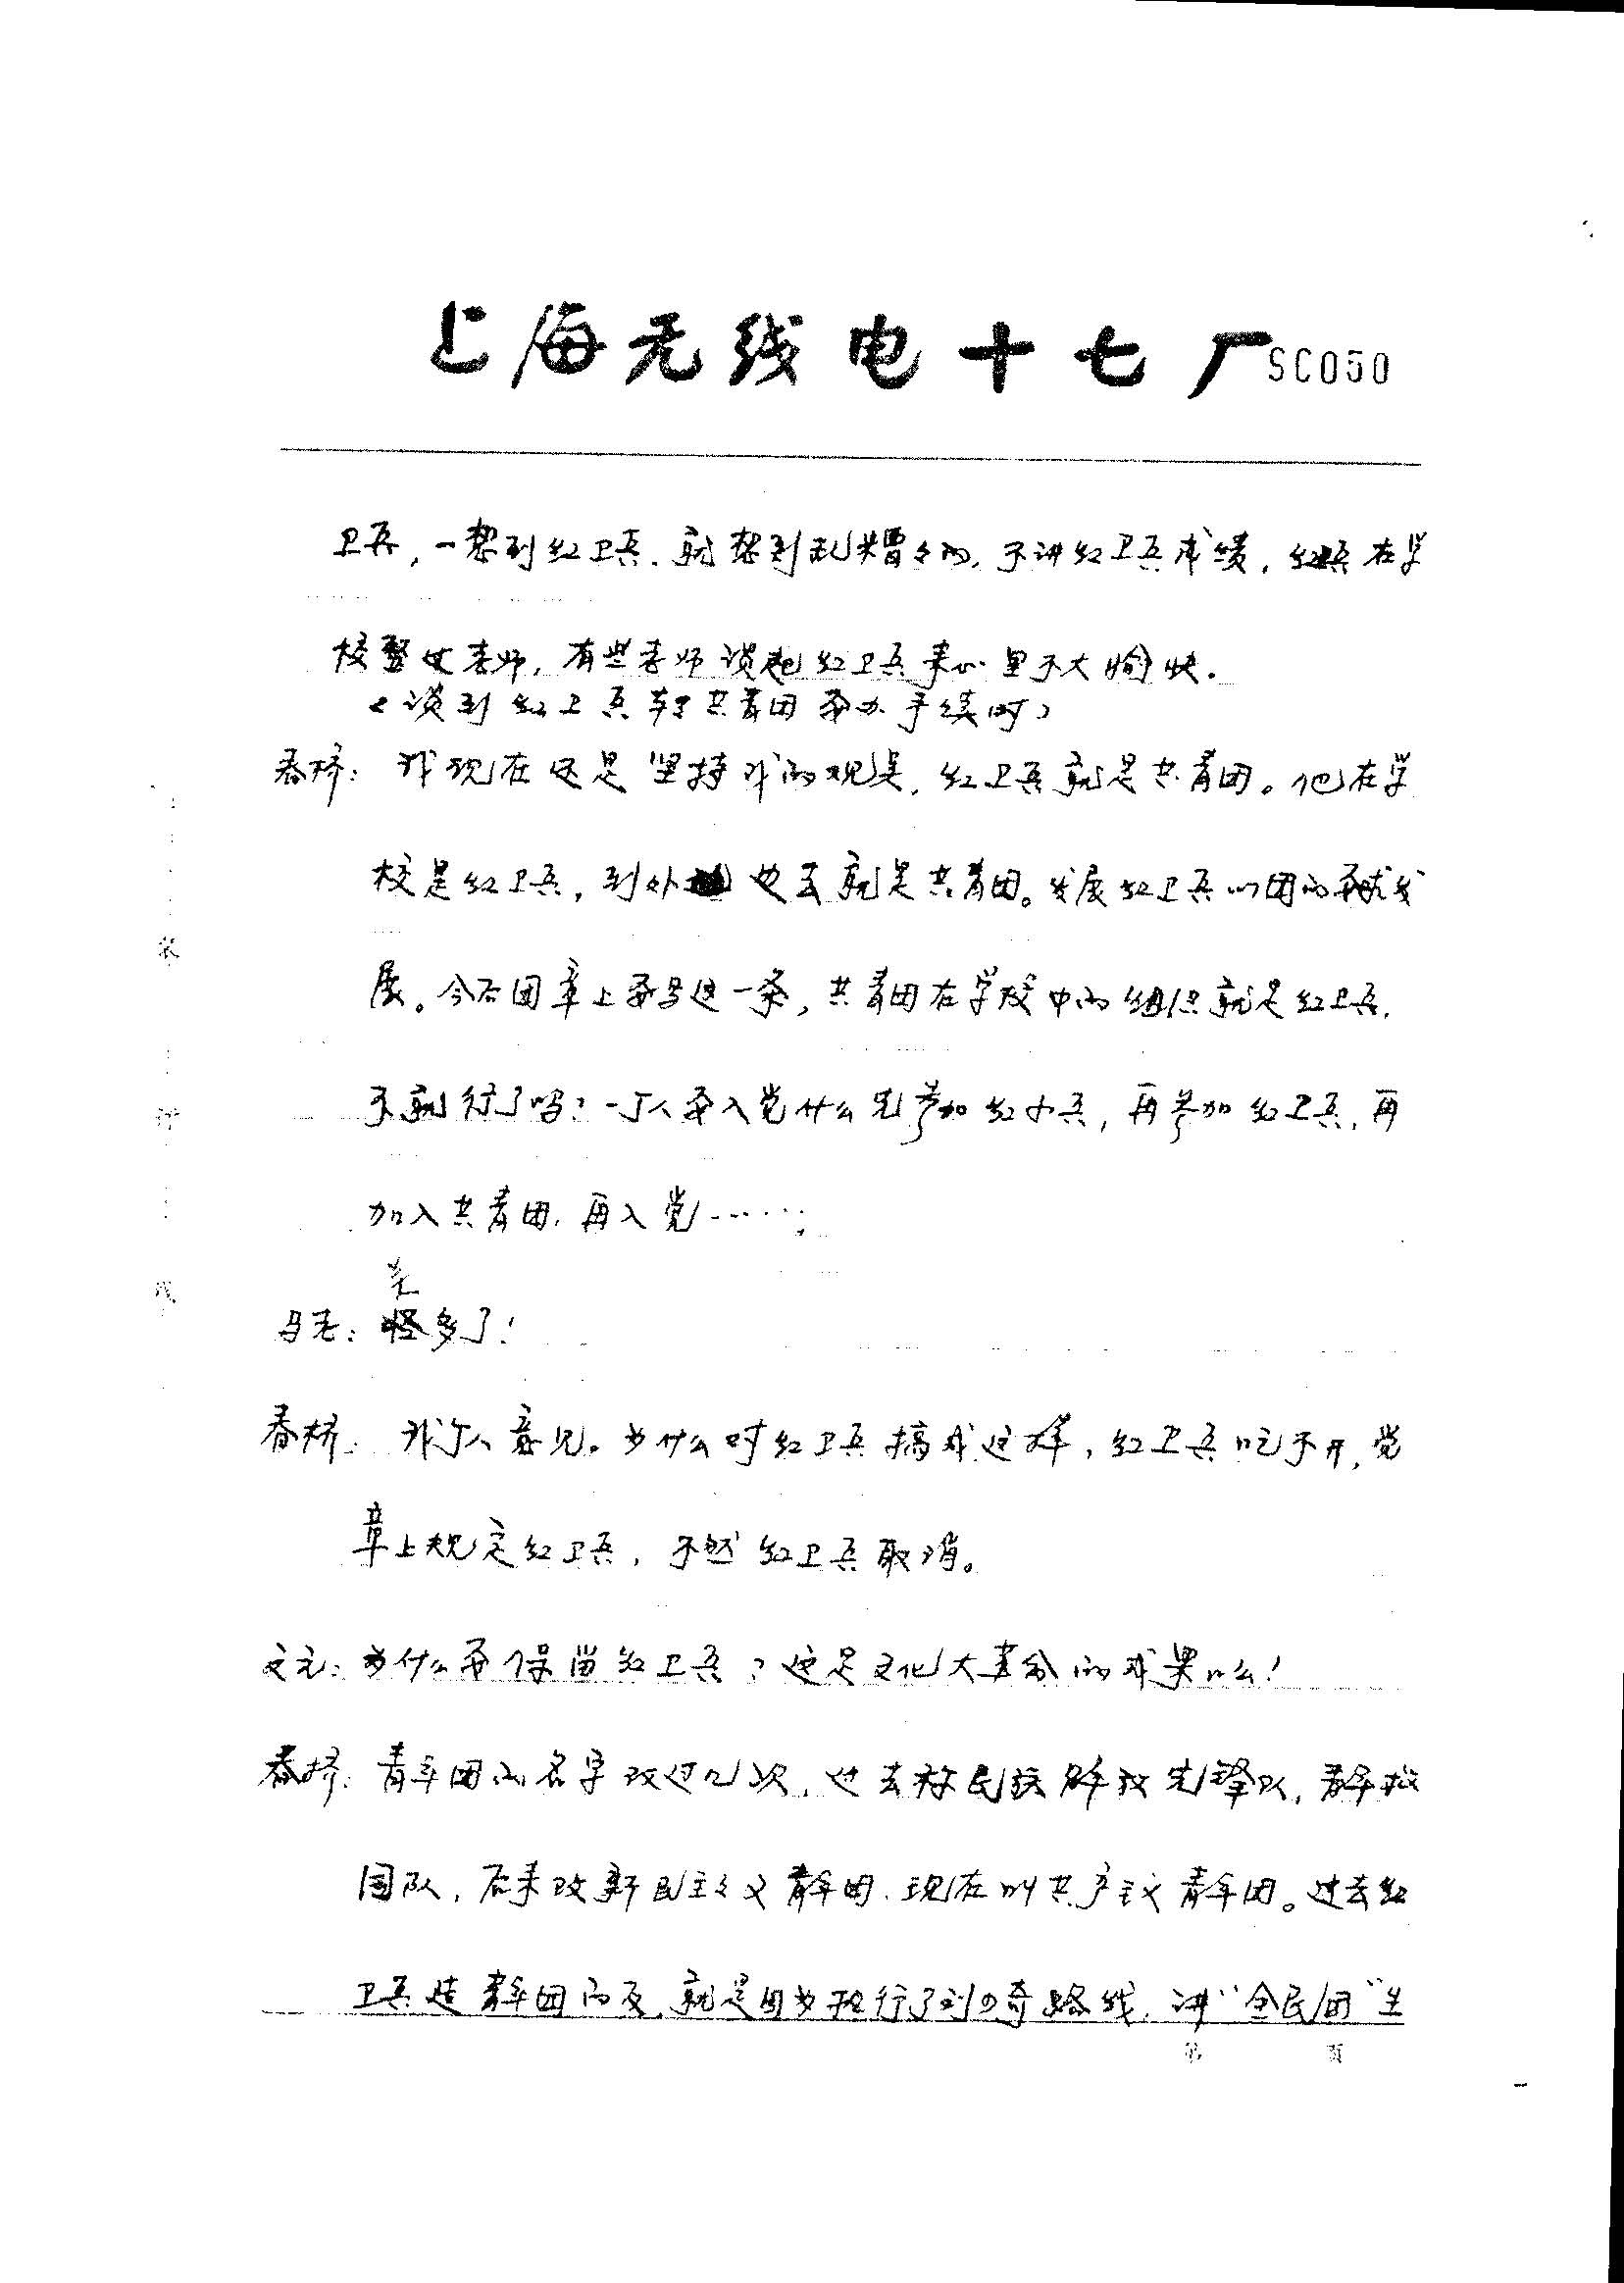 上海无线电十七厂SC050
卫兵,一想到红卫兵.就想到乱糟々的.不讲红卫兵成绩,红卫兵在学
校整过老师,有些老师谈起红卫兵来心里不大愉快.
(谈到红卫兵转共青团要办手续时)
春桥:我现在还是坚持我的观点,红卫兵就是共青团。他在学
校是红卫兵,到外也去就是共青团。发展红卫兵以团的要求发
展。今后团章上要写这一条,共青团在学校中的组织就是红卫兵.
不就行了吗?一个人要入党什么先参加红小兵,再参加红卫兵,再
加入共青团,再入党……;
老
马老:怪多了!
春桥:我个人意见。为什么对红卫兵搞成这样,红卫兵吃不开,党
章上规定红卫兵,不然红卫兵取消。
文元:为什么要保留红卫兵?这是文化大革命的成果么!
春桥:青年团的名字改过几次,过去称民族解放先锋队,青年救
国队,后来改新民主主义青年团.现在叫共产主义青年团。过去红
卫兵造青年团的反,就是因为执行了刘少奇路线,讲“全民团”生
第 页
装
订
线